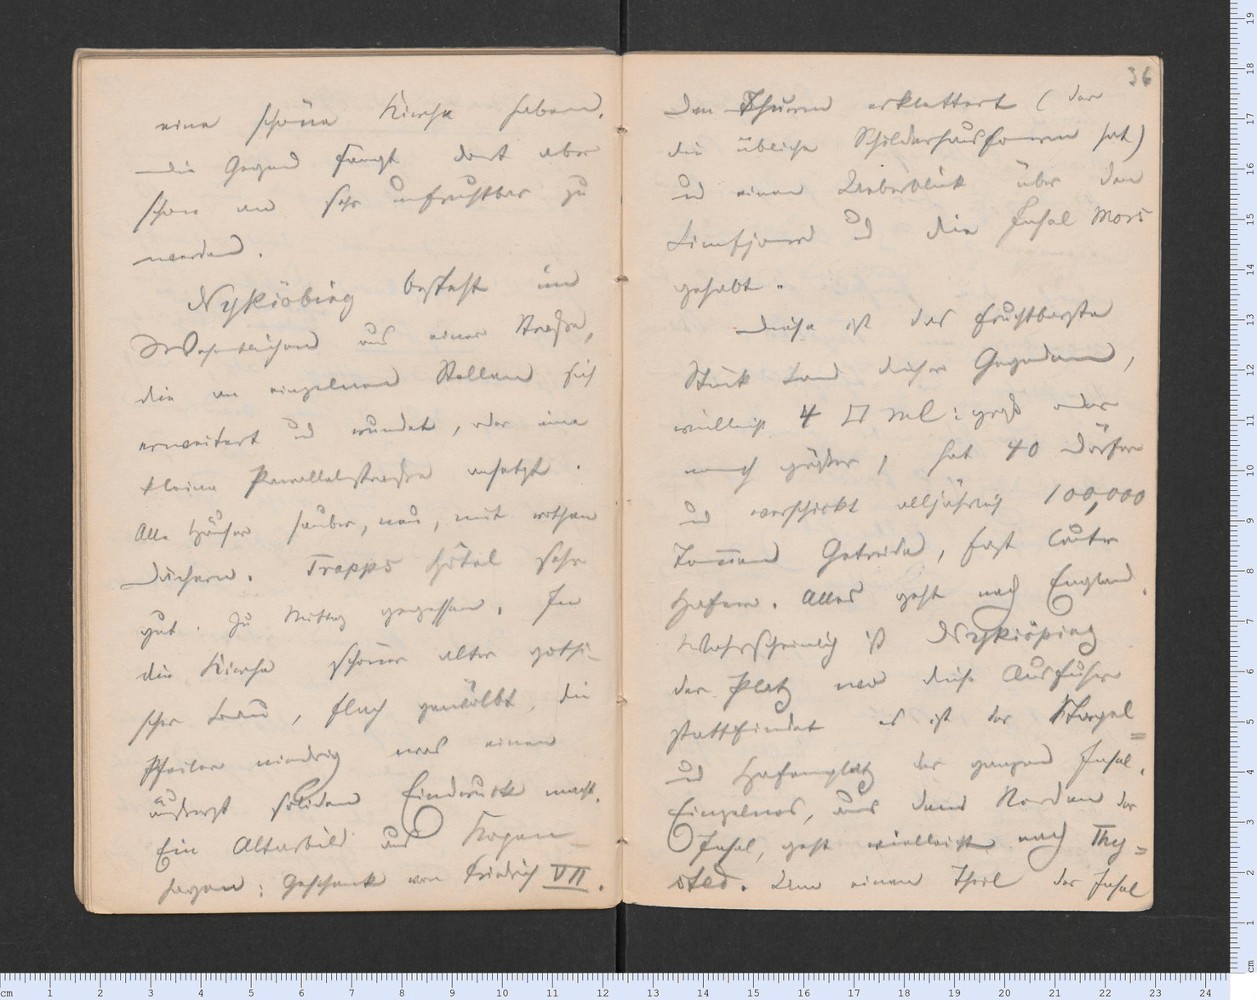 eine schöne Kirche haben.
die Gegend fängt dort aber
schon an sehr unfruchtbar zu
werden.
Nykiöbing besteht im
Wesentlichen aus einer Straße,
die an einzelnen Stellen sich
erweitert und rundet, oder eine
kleine Parallelstraße ansetzt.
Alle Häuser sauber, neu, mit rothen
Dächern. Trapps Hôtel sehr
gut. Zu Mittag gegessen. In
die Kirche schöner alter gothi-
scher Bau, flach gewölbt, die
Pfeiler niedrig was einen
äußerst soliden Eindruck macht.
Ein Altarbild aus Kopen-
hagen: Geschenk von Friedrich VII.
36
Den Thurm erklettert (der
die übliche Schilderhausform hat)
und einen Ueberblick über den
Limfjord und die Insel Mors
gehabt.
Diese ist das fruchtbarste
Stück Land dieser Gegenden,
vielleicht 4 □ Ml: groß oder
noch größer, hat 40 Dörfer
und verschickt alljährlich 100,000
Tonnen Getreide, fast lauter
Hafer. Alles geht nach England.
Wahrscheinlich ist Nykiöping
der Platz wo diese Ausfuhr
stattfindet es ist der Stapel=
und Hafenplatz der ganzen Insel.
Einzelnes, aus dem Norden der
Insel, geht vielleicht nach Thy=
sted. einen Theil der Insel